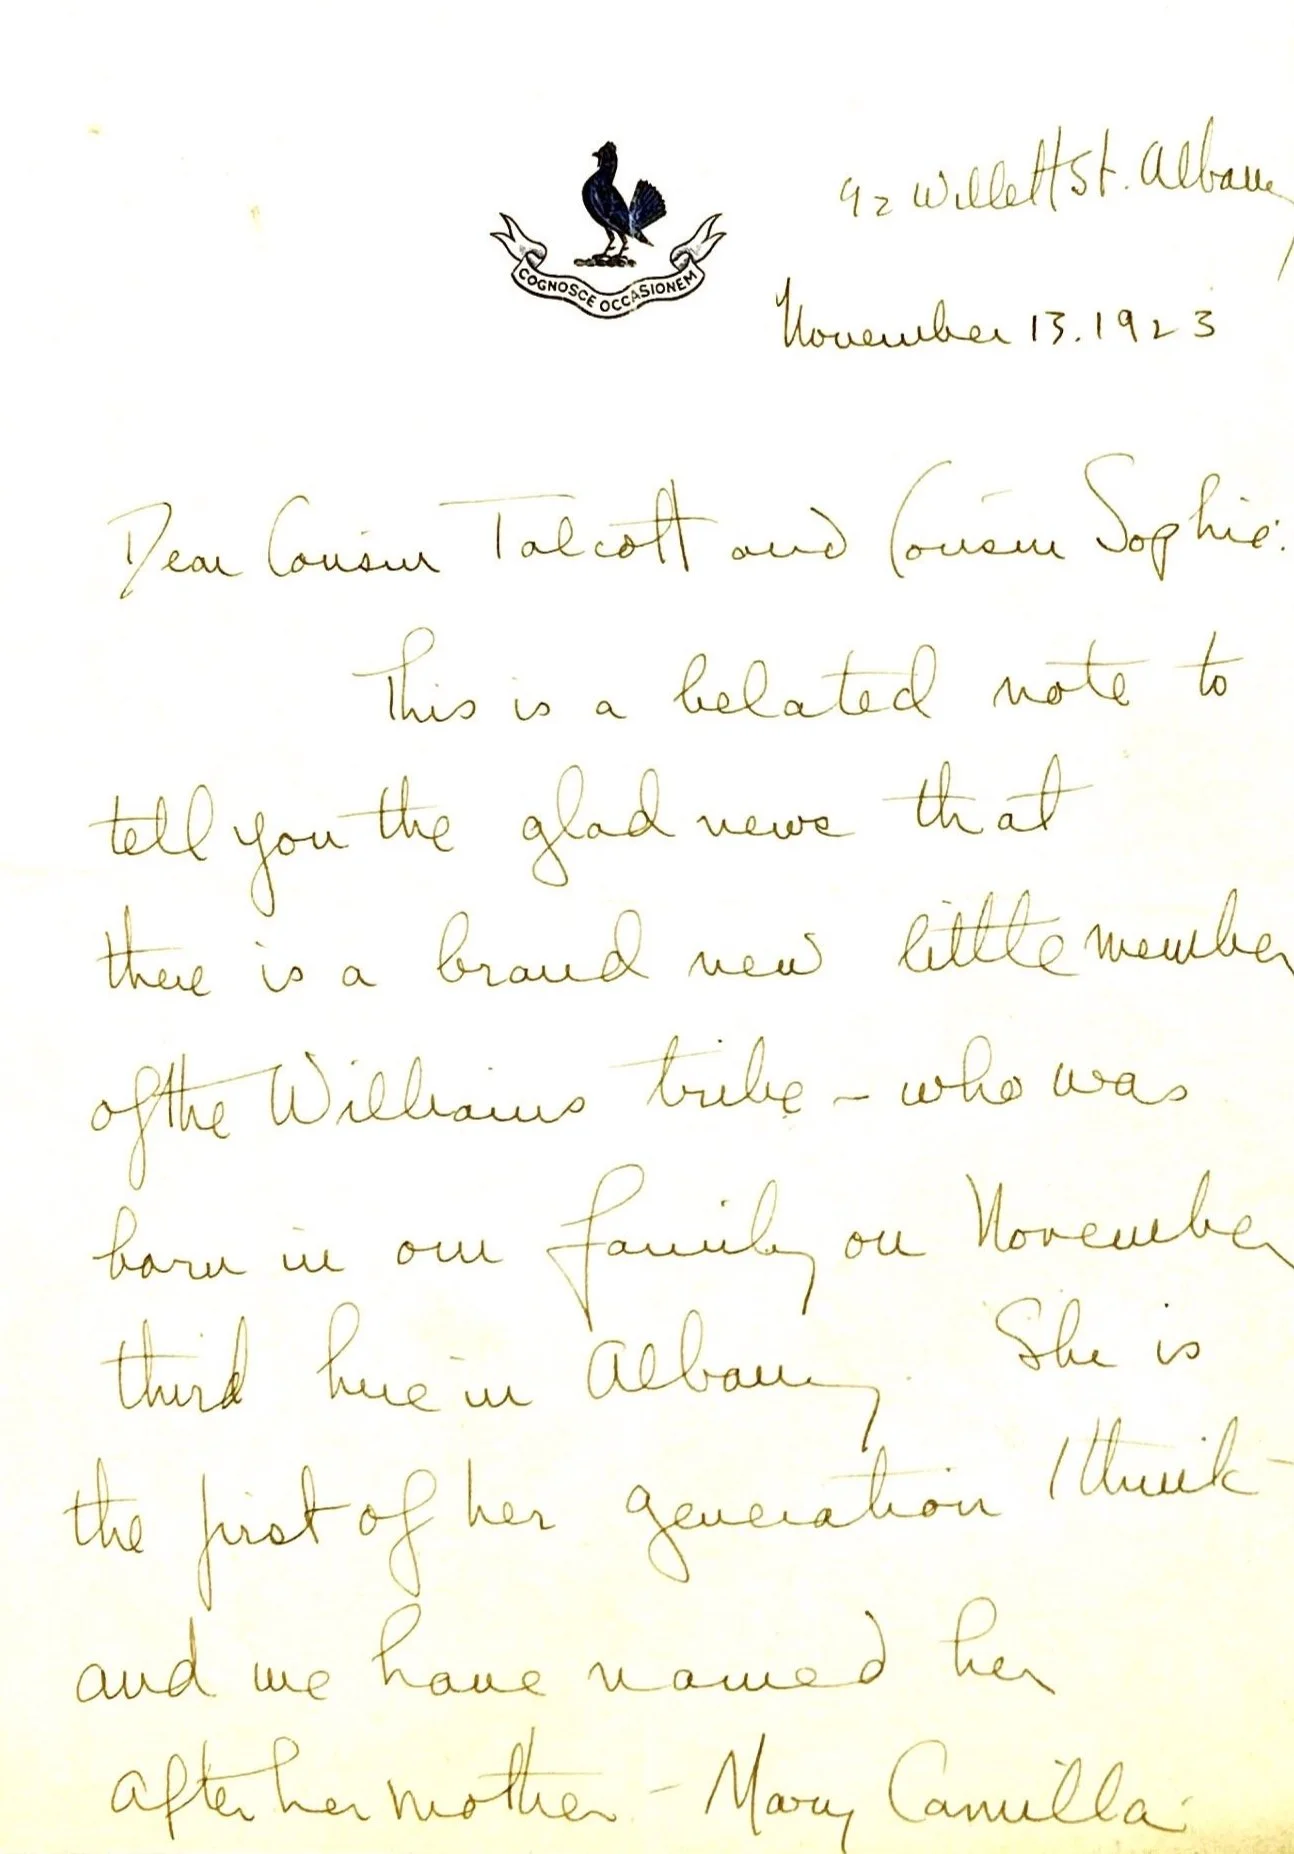 92 Willett St. Albany
COGNOSCE OCCASIONEM
November 13. 1923
Dear Cousin Talcott and Cousin Sophie:
This is a belated note to
tell you the glad news that
there is a brand new little member
of the Williams tribe – who was
born in our family on November
third here in Albany. She is
the first of her generation I think –
and we have named her
after her mother – Mary Camilla.